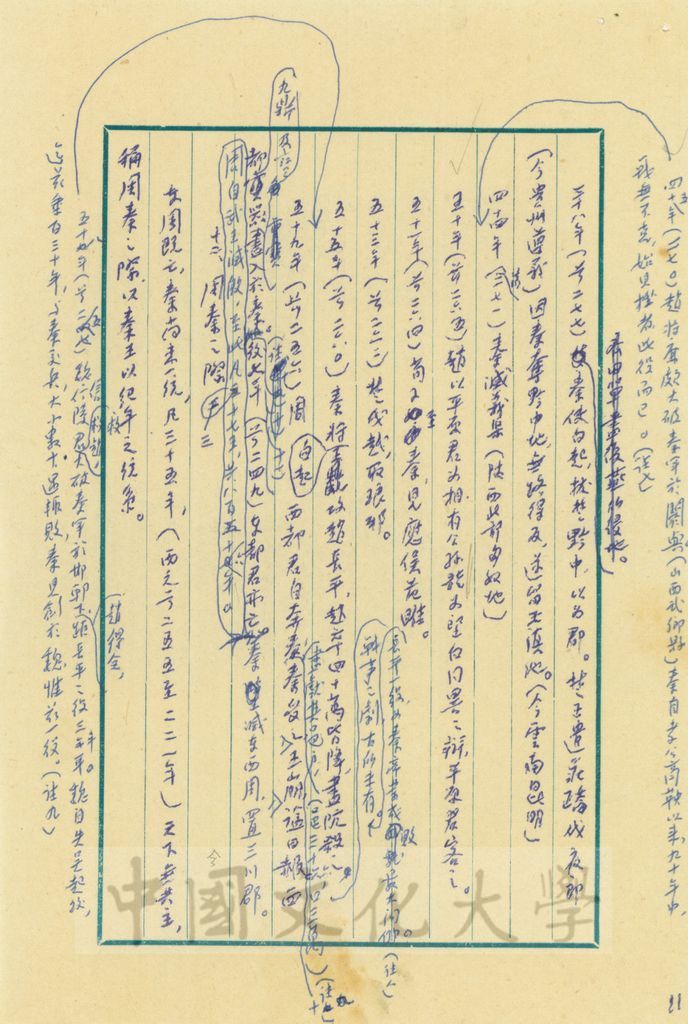 四十五年(前二七〇)趙將廉頗大破秦軍於閼與(山西武鄉縣)秦自孝公商鞅以來,九十年中,
戰無不克,始見挫者此役而已。(註七)
三十八年(前二七七)秦使白起,拔楚黔中,以為郡。楚王遣莊蹻伐夜郎
(今貴州遵義)因秦奪黔中地,無路得反,遂留王滇池。(今雲南昆明)
四十四年(前二七一)秦滅義渠(陝西北部甘肅地)
五十年(前二六五)趙以平原君為相,有公孫龍為堅白同異之辯,平原君客之。
五十一年(前二六四)荀子至秦,見應侯范睢。
五十三年(前二六二)楚伐越,取琅邪。
五十五年(前二六〇)秦將白起攻趙長平,趙卒四十萬皆降,盡阬殺之。
長平一役,為秦
戰爭之劇古所未有。
(註八)
五十九年(前二五六)周
西都君自奔秦,
王崩,
西
(邑三十六口三萬)
九鼎及
都寶器盡入於秦。後七年(前二四九)東都君亦亡。秦滅東西周,置三川郡。
周自武王滅殷,至此凡三十七王,共八百五十七年。
十三 周秦之際
東周既亡,秦尚未一統,凡三十五年,(西元前二五五至二二一年)天下無共主,
稱周秦之際,以秦王以紀年之統系。
(趙得全,
五十八年(前二五七)魏信陵君救趙大破秦軍於邯鄲,距長平之役三年。魏自失吳起後,
迄茲垂百三十年,與秦交兵,大小數十遇輒敗,秦見創於魏,惟茲一役。(註九)
中國文化大學
11